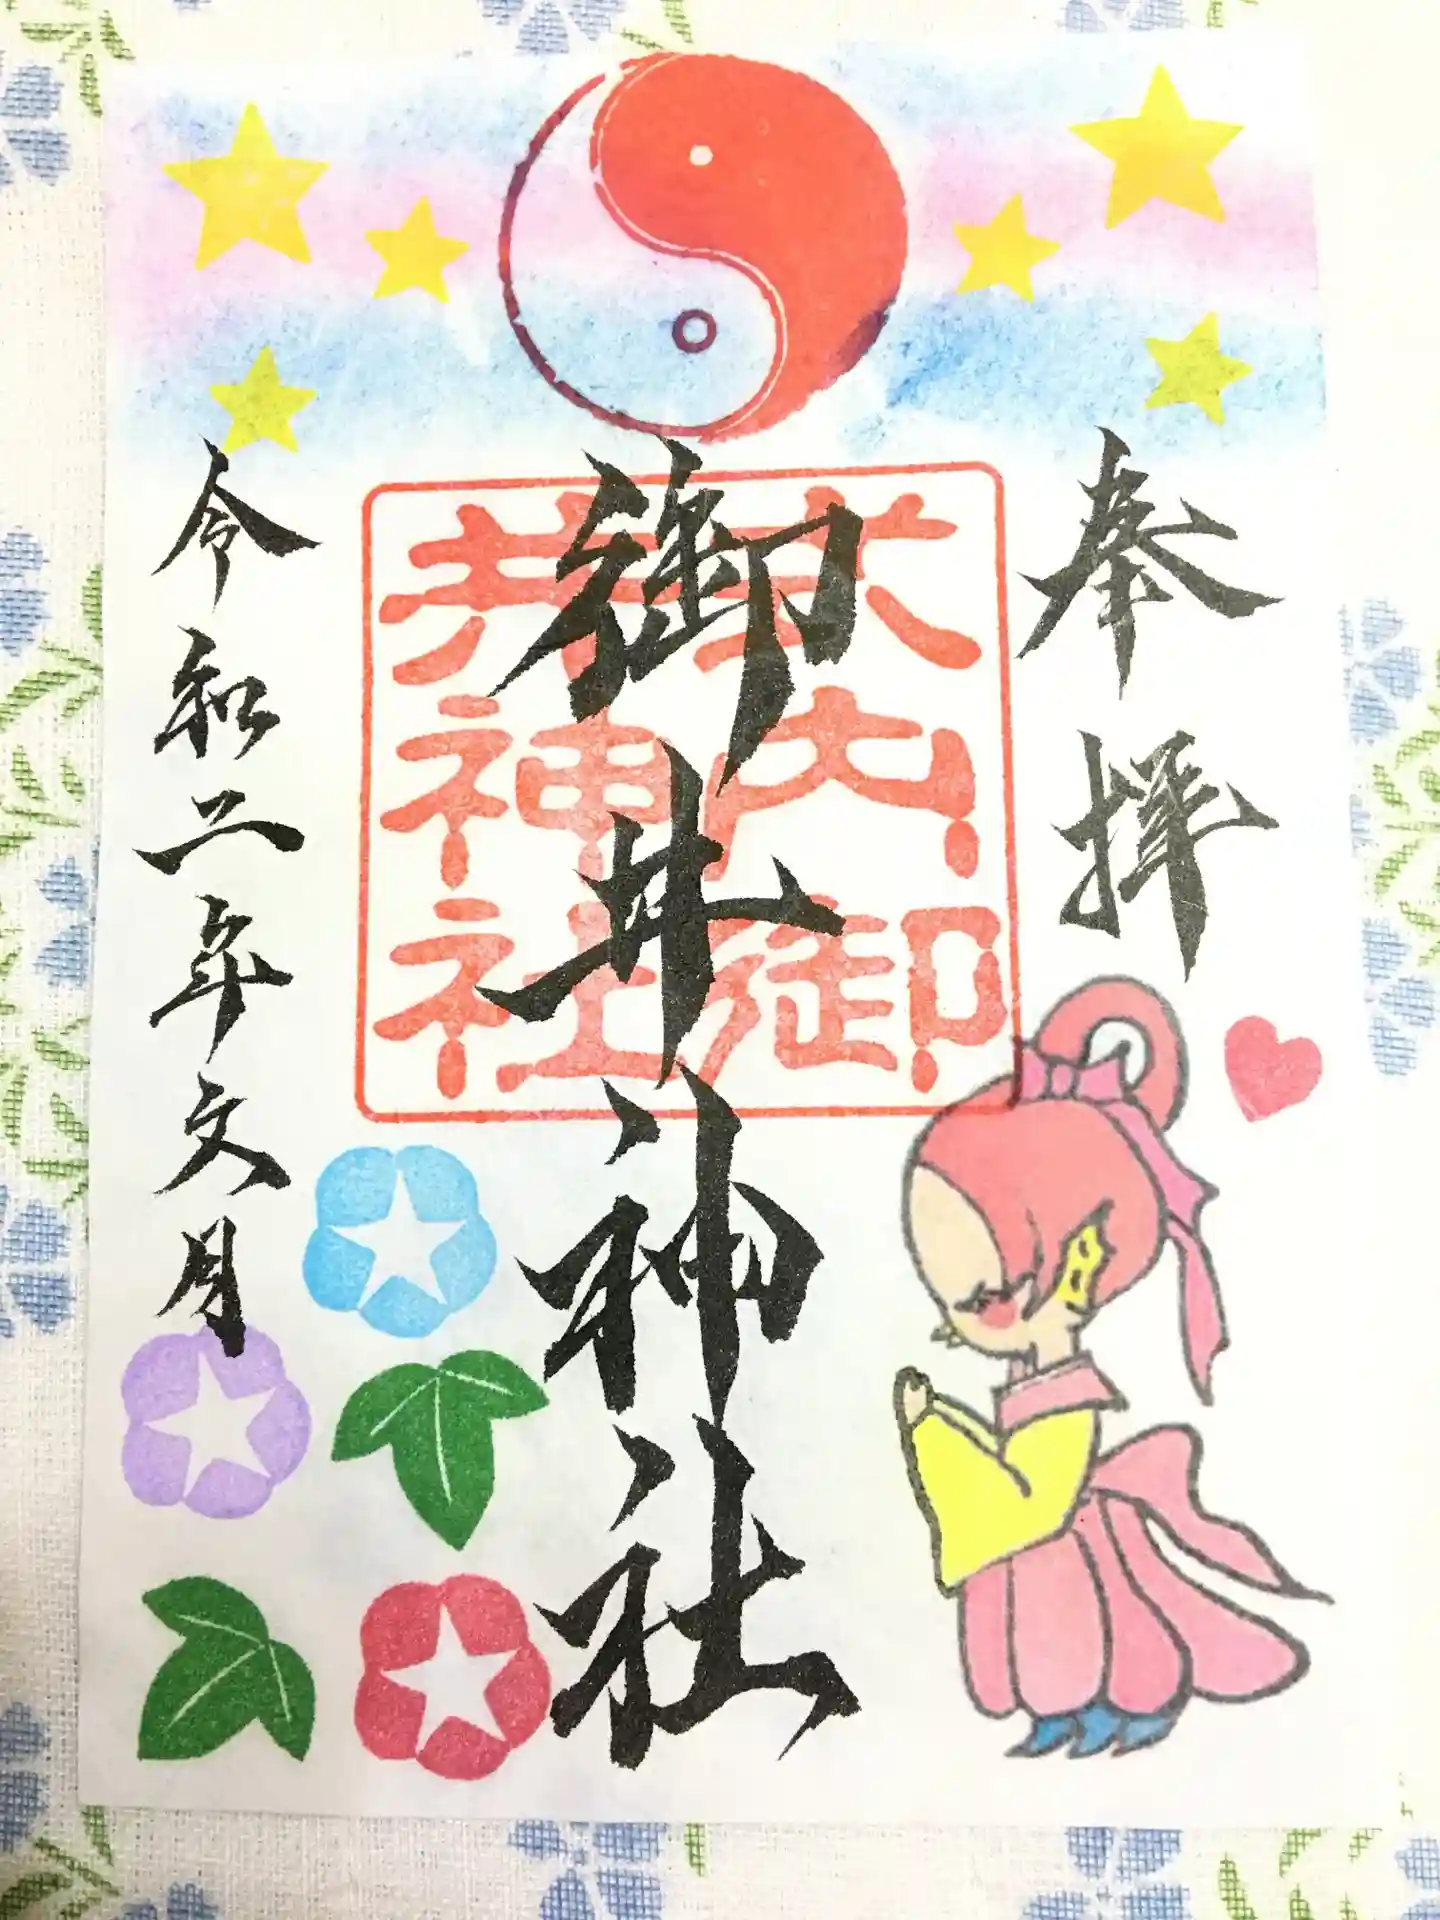 奉拝
御井神社
令和二年文月
内御
井神社